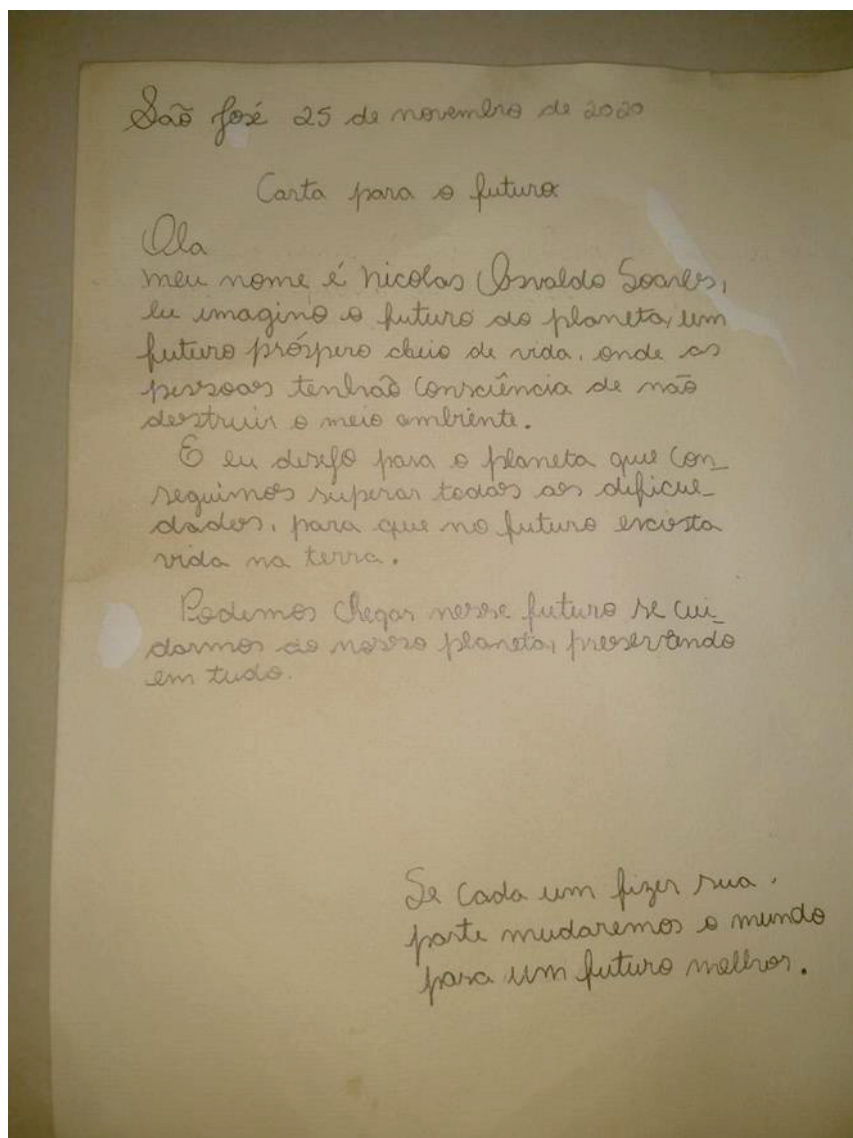 São José 25 de novembro de 2020
Carta para o futuro
Ola
meu nome é Nicolas Osvaldo Soares,
eu imagino o futuro do planeta, um
futuro próspero cheio de vida, onde as
pessoas tenhão consciência de não
destruir o meio ambiente.
E eu desejo para o planeta que con_
seguimos superar todas as dificul_
dades, para que no futuro exista
vida na terra.
Podemos chegar nesse futuro se cui_
darmos do nosso planeta, preservando
em tudo.
Se cada um fizer sua
parte mudaremos o mundo
para um futuro melhor.